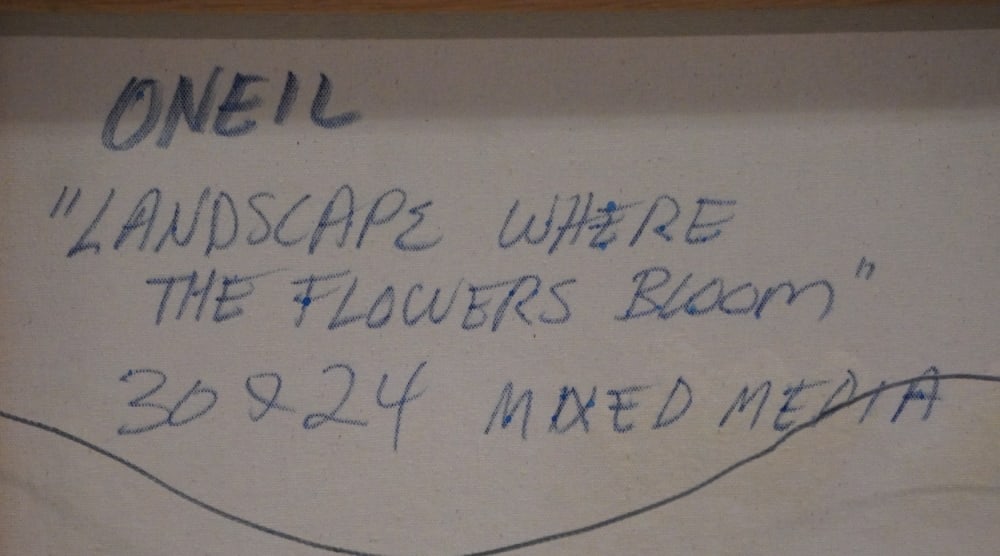 ONEIL
"LANDSCAPE WHERE
THE FLOWERS BLOOM"
30 x 24 MIXED MEDIA